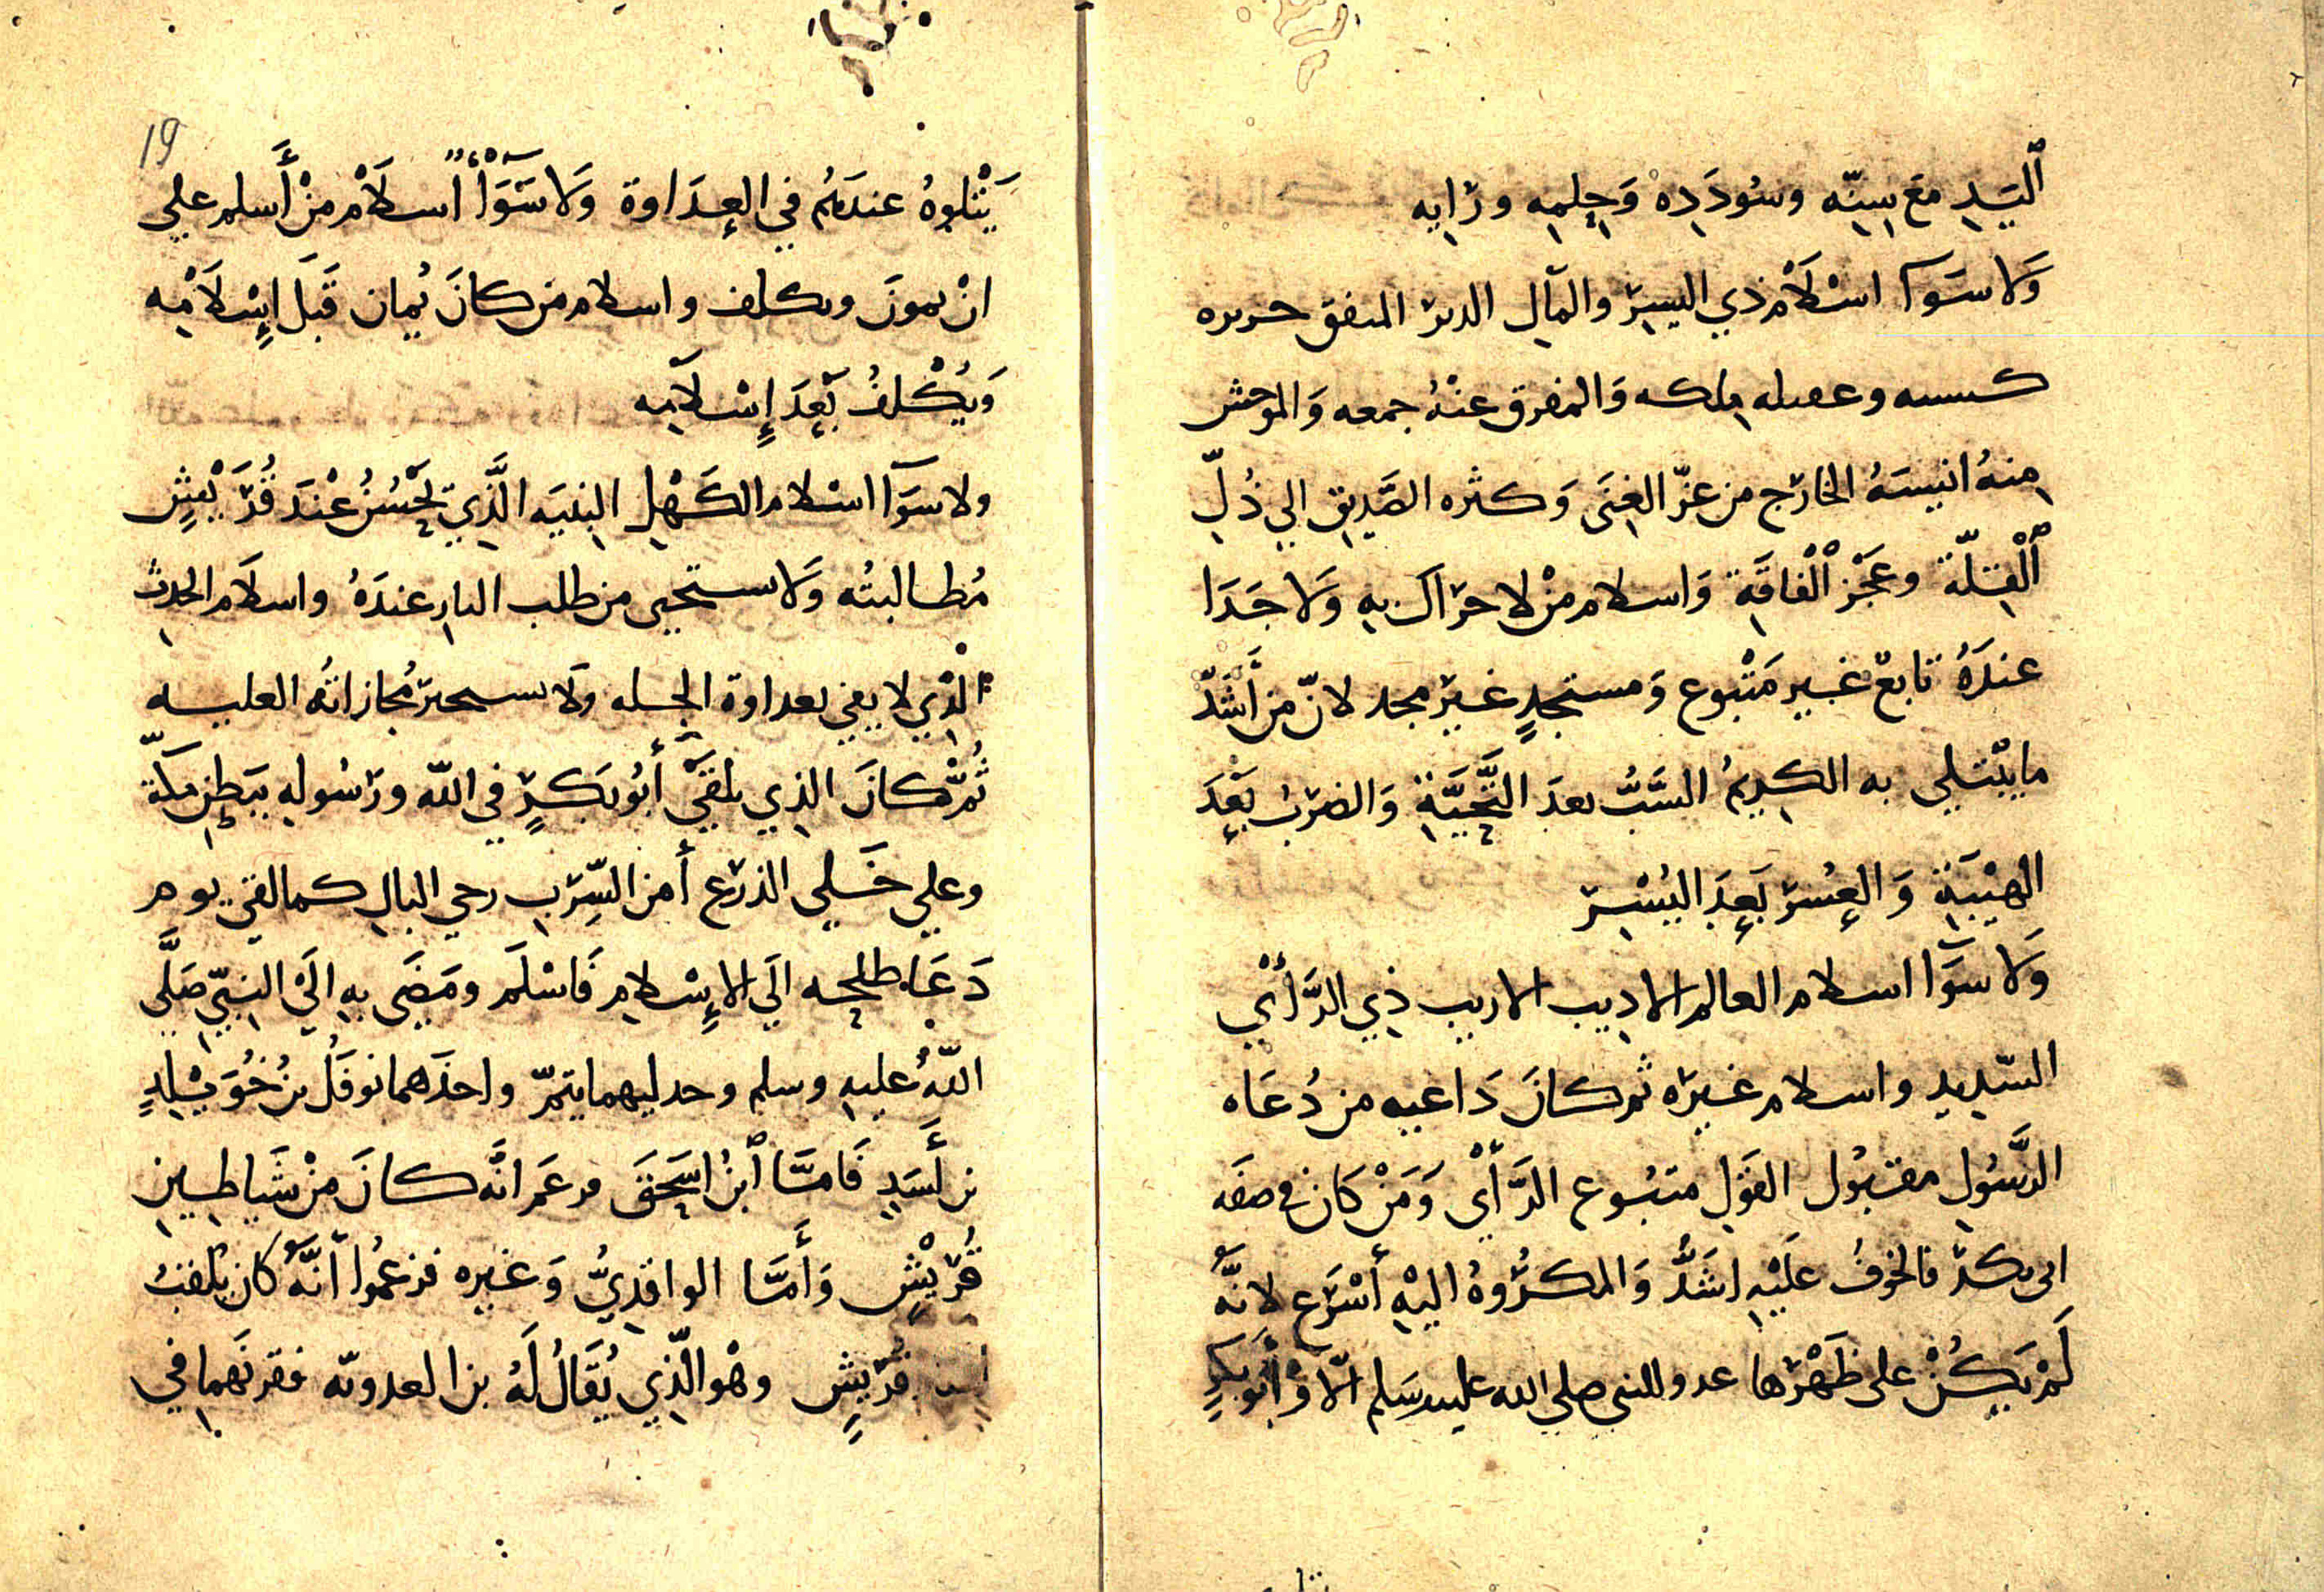 السَيّدِ مَعَ سِنِّه وسُودَدِه وَحِلمِه ورَايِه
وَلا سَوَآ اسْلَامُ ذي اليسِرْ والمالِ الدىر المنفق حرىره
كسىىه وعقىله مِلكه وَالمفرق عنْهُ جمعه وَالموحش
مِنهُ انيسَهُ الخارج من عزّ الغِنَى وَكثره الصَّدِيقِ الي ذُلِّ
ٱلْقِلّة وعَجْز ٱلْفاقَةِ وَاسلام مَنْ لا حرَاك بهِ وَلا جَدَا
عندَهُ تابعٌ غير مَتْبوع وَمستجدٍ غير مجد لانّ من أشَدّ
ما يبْتلي به الكريمُ السَّبُّ بعدَ التَّحِيَّةِ وَالضرْبُ بَعْدَ
الهيْبَةِ وَالعُسْر بَعدَ اليُسْر
وَلا سَوَآ اسلام العالم الاديب الاريب ذِي الرَّأْي
السّديد واسلام غيره ثم كانَ دَاعيه من دُعَاه
الرَّسُولِ مقبُول القَوْلِ متبُوع الرَّأْي وَمَنْ كان في صفَه
ابى بكر فالخوفُ عَلَيْهِ اشَدُّ وَالمكرُوهُ اليْهِ أَسْرَع لانَّهُ
لَمْ يَكُنْ على ظَهْرها عدو للنبي صلى الله عليه وسَلم الّا وَأَبُو بَكرٍ
يَتْلوهُ عندَهُم في العدَاوة وَلا سَوَآءٌ اسلَامُ مَنْ أَسلم علي
انْ يمونَ ويكلف واسلام من كانَ يُمان قَبلَ إسْلَامِه
وَيُكْلفُ بَعدَ إسْلامِه
ولا سَوَآ اسْلام الكَهْلِ النبيَه الَّذِي يَحْسُنُ عْندَ قُرَيْشٍ
مُطالبتُه وَلا ستحيى من طلب الثارِ عندَهُ واسلَام الحدث
الّذِي لا يفي بعداوة الجله ولا يستجيز مُجازاتُه العليه
ثُمَّ كانَ الذِي يلقَي أبُو بَكرٍ في الله ورَسُولِهِ ببَطنِ مكّة
وعلي خَلي الذرع أمن السِّرب رخي البالِ كما لقي يوم
دَعَا طلحه الَي الإسْلامِ فَاسْلَم ومَضَى بهِ الَي النبيّ صَلَّي
اللهُ عليهِ وسلم وحد ليهما يتمّر واخذَهما نوفَلُ بنُ خُوَيْلدٍ
بن أَسَدٍ فَامَّا ٱبنُ اسحَقَ فزعَم انَّه كانَ مِنْ شَيَاطِين
قُرَيْشٍ وَأمَّا الواقدِيُّ وَغيره فزعمُوا انَّهُ كان يُلقب
أسد قرَيشٍ وهْو الّذِي يُقَالُ لَهُ بن العدويّه فقرنَهما في
19